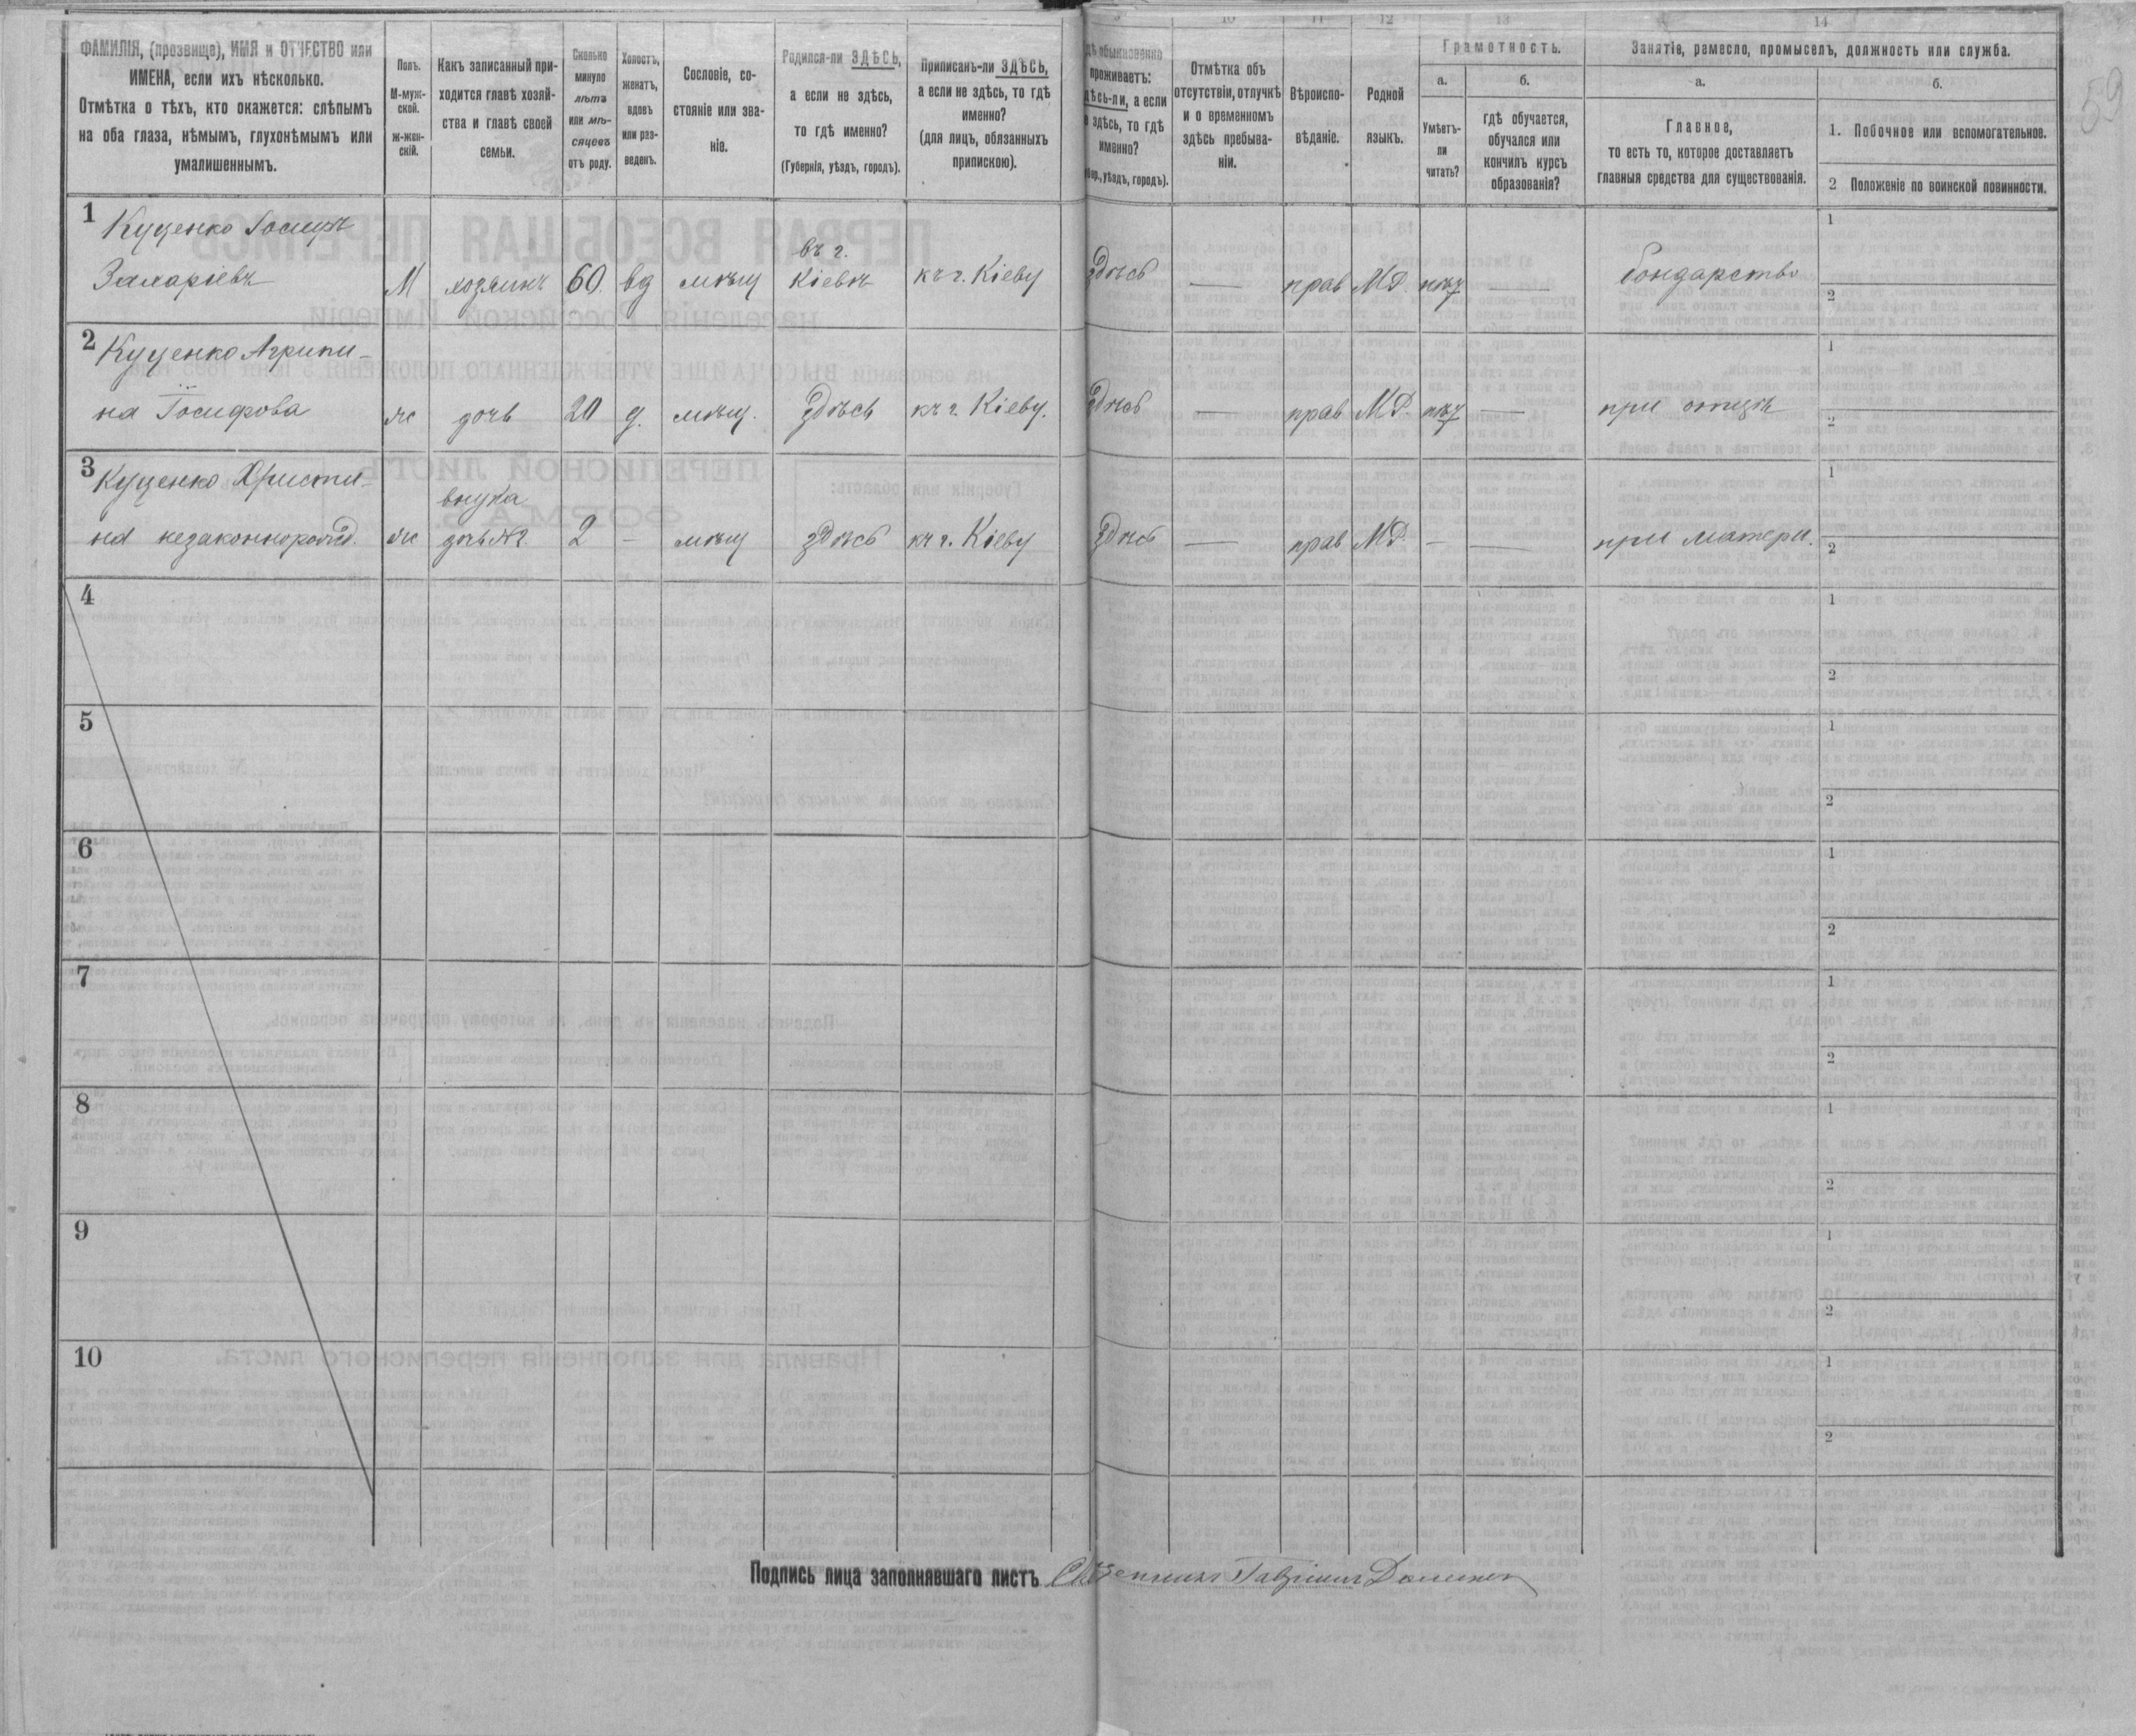 59
9 10 11 12 13 14
ФАМИЛІЯ, (прозвище), ИМЯ и ОТЧЕСТВО или
ИМЕНА, если ихъ нѣсколько.
Отмѣтка о тѣхъ, кто окажется: слѣпымъ
на оба глаза, нѣмымъ, глухонѣмымъ или
умалишеннымъ.
Полъ.
М-муж-
ской.
ж-жен-
скій.
Какъ записанный при-
ходится главѣ хозяй-
ства и главѣ своей
семьи.
Сколько
минуло
лѣтъ
или мѣ-
сяцевъ
отъ роду.
Холостъ,
женатъ,
вдовъ
или раз-
веденъ.
Сословіе, со-
стояніе или зва-
ніе.
Родился-ли ЗДѢСЬ,
а если не здѣсь,
то гдѣ именно?
(Губернія, уѣздъ, городъ).
Приписанъ-ли ЗДѢСЬ,
а если не здѣсь, то гдѣ
именно?
(для лицъ, обязанныхъ
припискою).
дѣ обыкновенно
проживаетъ:
дѣсь-ли, а если
здѣсь, то гдѣ
именно?
бер., уѣздъ, городъ).
Отмѣтка объ
отсутствіи, отлучкѣ
и о временномъ
здѣсь пребыва-
ніи.
Вѣроиспо-
вѣданіе.
Родной
языкъ.
Грамотность.
а.
Умѣетъ-
ли
читать?
б.
гдѣ обучается,
обучался или
кончилъ курсъ
образованія?
Занятіе, ремесло, промыселъ, должность или служба.
а.
Главное,
то есть то, которое доставляетъ
главныя средства для существованія.
б.
1. Побочное или вспомогательное.
2 Положеніе по воинской повинности.
1 Куценко Іосифъ
Захаріевъ М хозяинъ 60. вд мѣщ въ г. Кіевѣ къ г. Кіеву здѣсь — прав МР. нѣт — бондарство 1 2
2 Куценко Агрипи-
на Іосифова ж дочь 20 д. мѣщ. здѣсь къ г. Кіеву. здѣсь — прав МР. нѣт — при отцѣ 1 2
3 Куценко Христи-
на незаконнорожд. ж внука дочь №2. 2 - мѣщ здѣсь къ г. Кіеву здѣсь — прав МР. - — при матери. 1 2
4 1 2
5 1 2
6 1 2
7 1 2
8 1 2
9 1 2
10 1 2
Подпись лица заполнявшаго листъ